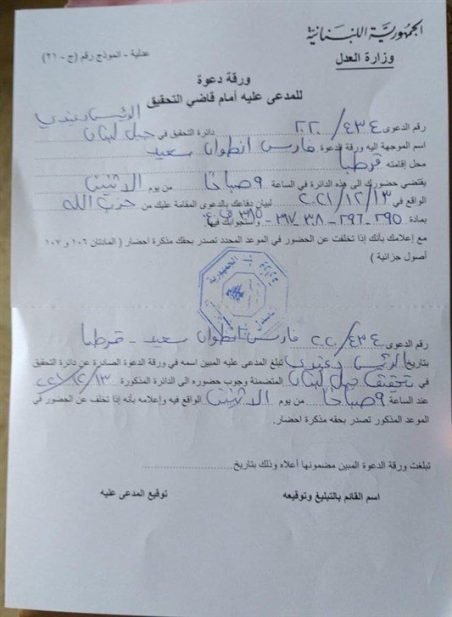 الجمهورية اللبنانية
وزارة العدل
عدلية - النموذج رقم (ج - ٢١)
ورقة دعوة
للمدعى عليه أمام قاضي التحقيق
رقم الدعوى ٢٠٢٠/٤٣٤ دائرة التحقيق في جبل لبنان
اسم الموجهة اليه ورقة الدعوة فارس انطوان سعيد
محل إقامته قرطبا
يقتضي حضورك الى هذه الدائرة في الساعة ٩ صباحًا من يوم الاثنين
الواقع في ٢٠٢١/١٢/١٣ لبيان دفاعك بالدعوى المقامة عليك من حزب الله
بمادة ٢٩٥ - ٢٩٦ - ٣٨ - ٣١٧ واستجوابك فيها.
مع إعلامك بأنك إذا تخلفت عن الحضور في الموعد المحدد تصدر بحقك مذكرة احضار ( المادتان ١٠٦ و ١٠٧
أصول جزائية )
رقم الدعوى ٢٠/٤٣٤ فارس انطوان سعيد - قرطبا
بتاريخ تبلغ المدعى عليه المبين اسمه في ورقة الدعوة الصادرة عن دائرة التحقيق
في جبل لبنان المتضمنة وجوب حضوره الى الدائرة المذكورة
عند الساعة ٩ صباحًا من يوم الاثنين الواقع فيه وإعلامه بأنه إذا تخلف عن الحضور في
الموعد المذكور تصدر بحقه مذكرة احضار.
تبلغت ورقة الدعوة المبين مضمونها أعلاه وذلك بتاريخ
اسم القائم بالتبليغ وتوقيعه
توقيع المدعى عليه